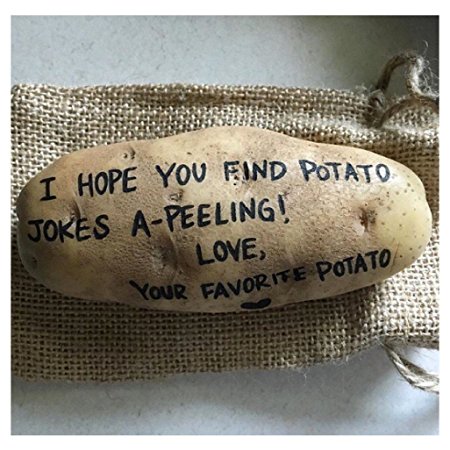 I HOPE YOU FIND POTATO
JOKES A-PEELING!
LOVE,
YOUR FAVORITE POTATO